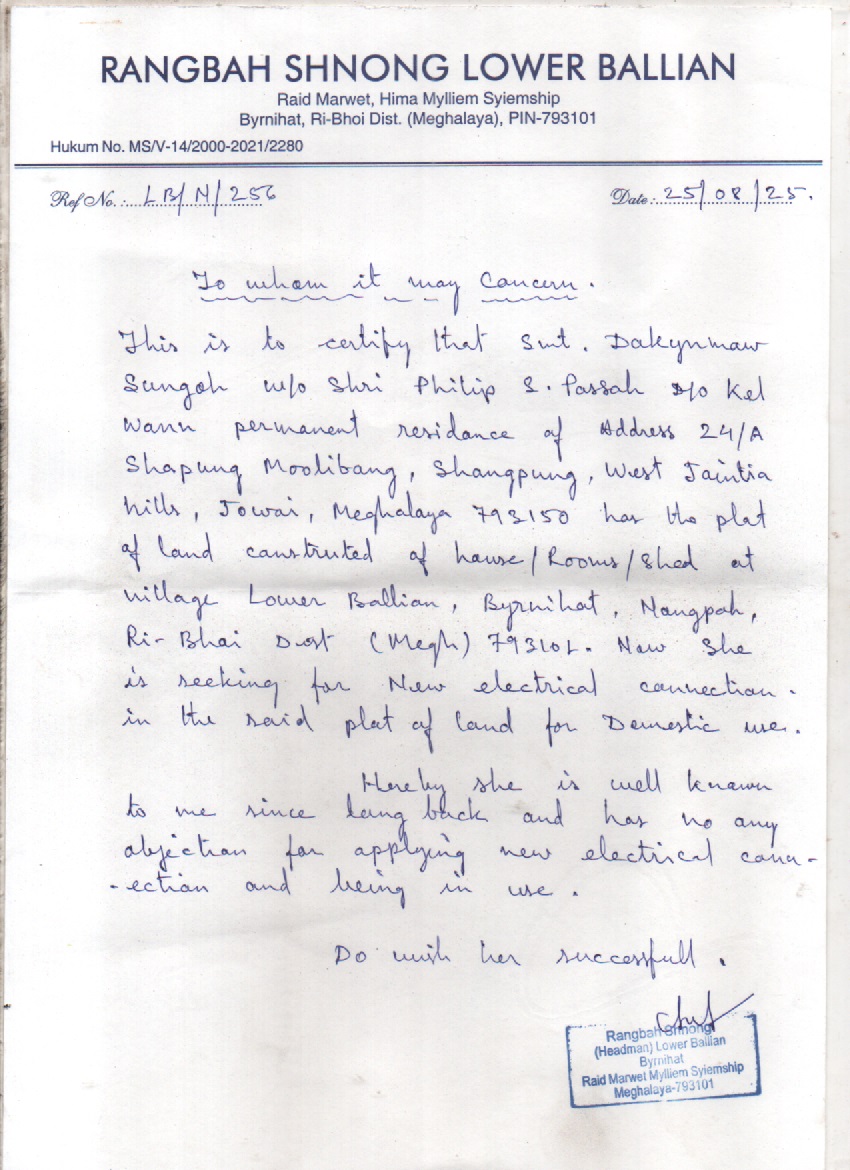 RANGBAH SHNONG LOWER BALLIAN
Raid Marwet, Hima Mylliem Syiemship
Byrnihat, Ri-Bhoi Dist. (Meghalaya), PIN-793101
Hukum No. MS/V-14/2000-2021/2280
Ref No. LB/N/256 Date: 25/08/25.
To whom it may Concern.
This is to certify that Smt. Dakynmaw
Sungoh w/o Shri Philip S. Passah D/o Kel
Wann permanent residance of Address 24/A
Shapung Moolibang, Shangpung, West Jaintia
hills, Jowai, Meghalaya 793150 has the plot
of land constructed of house/Rooms/Shed at
village Lower Ballian, Byrnihat, Nongpoh,
Ri-Bhoi Dist (Megh) 793101. Now She
is seeking for New electrical connection.
in the said plot of land for Domestic use.
Hereby she is well known
to me since long back and has no any
objection for applying new electrical conn-
-ection and being in use.
Do wish her successfull.
Rangbah Shnong
(Headman) Lower Ballian
Byrnihat
Raid Marwet Mylliem Syiemship
Meghalaya-793101